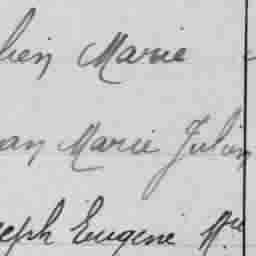 lien Marie
ean Marie Julien
seph Eugène Mie